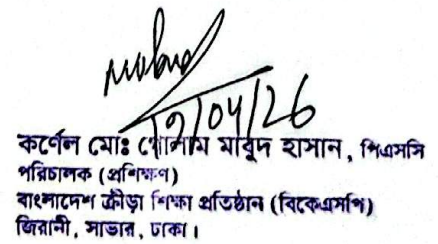 19/04/26
কর্ণেল মোঃ গোলাম মাবুদ হাসান, পিএসসি
পরিচালক (প্রশিক্ষণ)
বাংলাদেশ ক্রীড়া শিক্ষা প্রতিষ্ঠান (বিকেএসপি)
জিরানী, সাভার, ঢাকা।